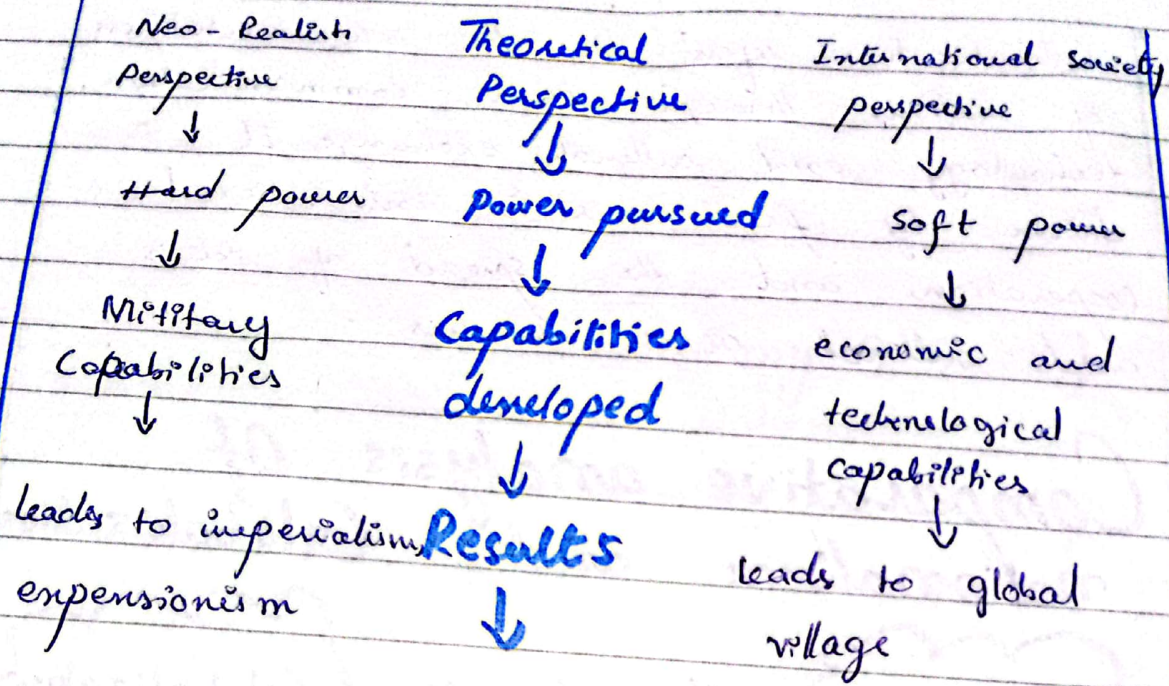 Neo-Realist
Perspective
↓
Hard power
↓
Mititary
Capabilities
↓
leads to imperialism,
expensionism
Theoretical
Perspective
↓
Power pursued
↓
Capabilities
developed
↓
Results
↓
International society
perspective
↓
Soft power
↓
economic and
technological
capabilities
↓
leads to global
village